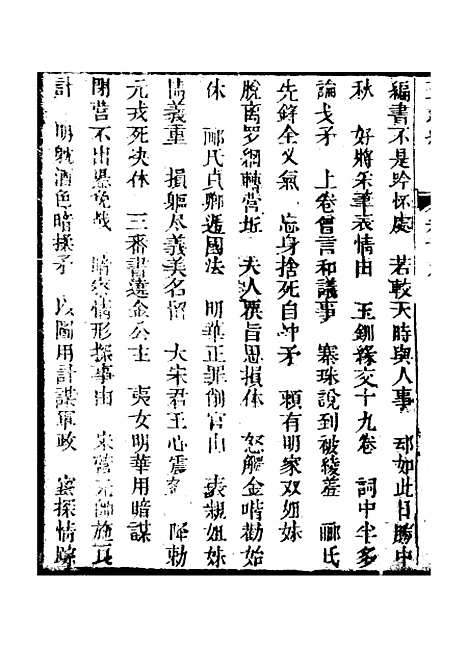 編書不是吟怀處　若較天時與人事　却如此日勝中
秋　好將采筆表情由　玉釧緣交十九卷　詞中半多
論戈矛　上卷曾言和議事　寨珠說到被綾羞　郦氏
先鋒全义氣　忘身捨死自冲矛　賴有明家双姐妹
脫离罗網轉营坵　夫人摂旨恩損体　怒觸金堦勸始
休　郦氏貞卿遞國法　明華正罪削官由　表親姐妹
義重　損軀尽義美名留　大朱君王心震　降勅
元戎死決休　三番書遣金公主　夷女明華用暗謀
閉营不出懸免戏　暗來情形探事由　营元帥施良
計　明眈酒色暗揉矛　以圖用計謀軍政　密探情踪